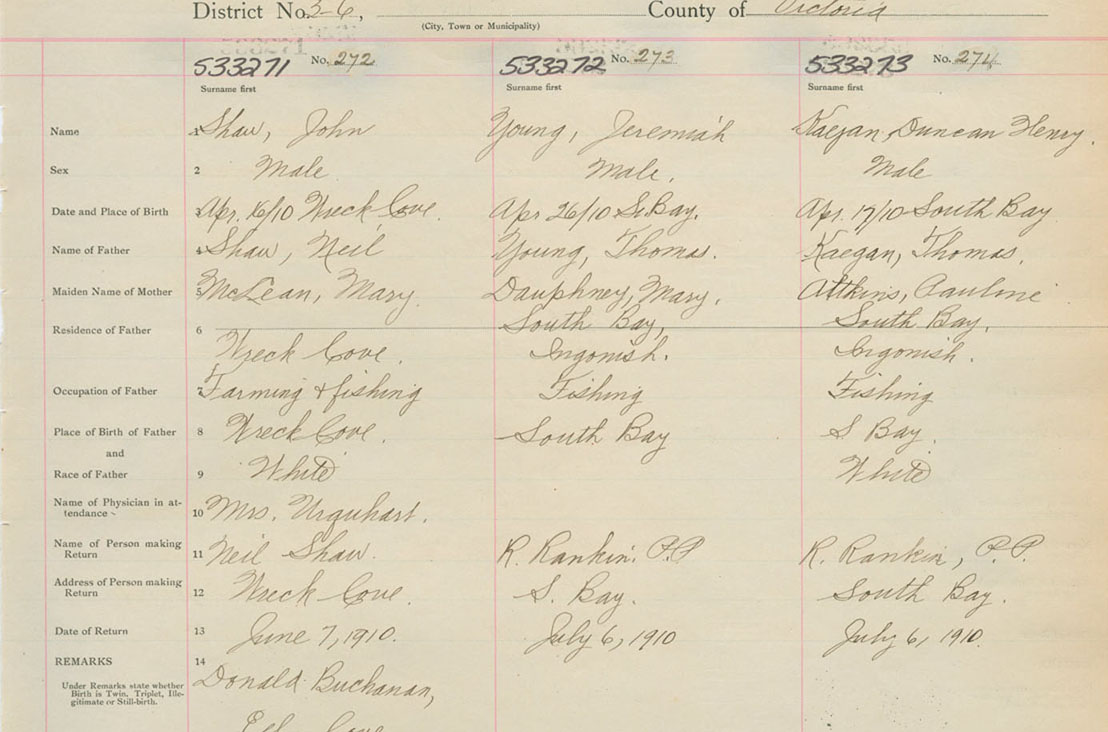 District No. 3-6, County of Victoria
(City, Town or Municipality)
533271 No. 272 533272 No. 273 533273 No. 274
Surname first Surname first Surname first
Name 1 Shaw, John Young, Jeremiah Kaegan, Duncan Henry.
Sex 2 Male Male. Male
Date and Place of Birth Apr. 16/10 Wreck Cove. Apr 26/10 S. Bay. Apr. 17/10 South Bay
Name of Father 4 Shaw, Neil Young, Thomas. Kaegan, Thomas.
Maiden Name of Mother 5 McLean, Mary. Dauphney, Mary. Attkins, Pauline
Residence of Father 6 South Bay, South Bay,
Wreck Cove. Ingonish. Ingonish.
Occupation of Father 7 Farming & fishing Fishing Fishing
Place of Birth of Father 8 Wreck Cove. South Bay S Bay.
and
Race of Father 9 White White
Name of Physician in at-
tendance 10 Mrs. Urquhart.
Name of Person making
Return 11 Neil Shaw. R. Rankin. P.P R. Rankin, P.P.
Address of Person making
Return 12 Wreck Cove. S. Bay. South Bay.
Date of Return 13 June 7, 1910. July 6, 1910 July 6, 1910.
REMARKS 14
Donald Buchanan,
Under Remarks state whether
Birth is Twin, Triplet, Ille-
gitimate or Still-birth.
Cove